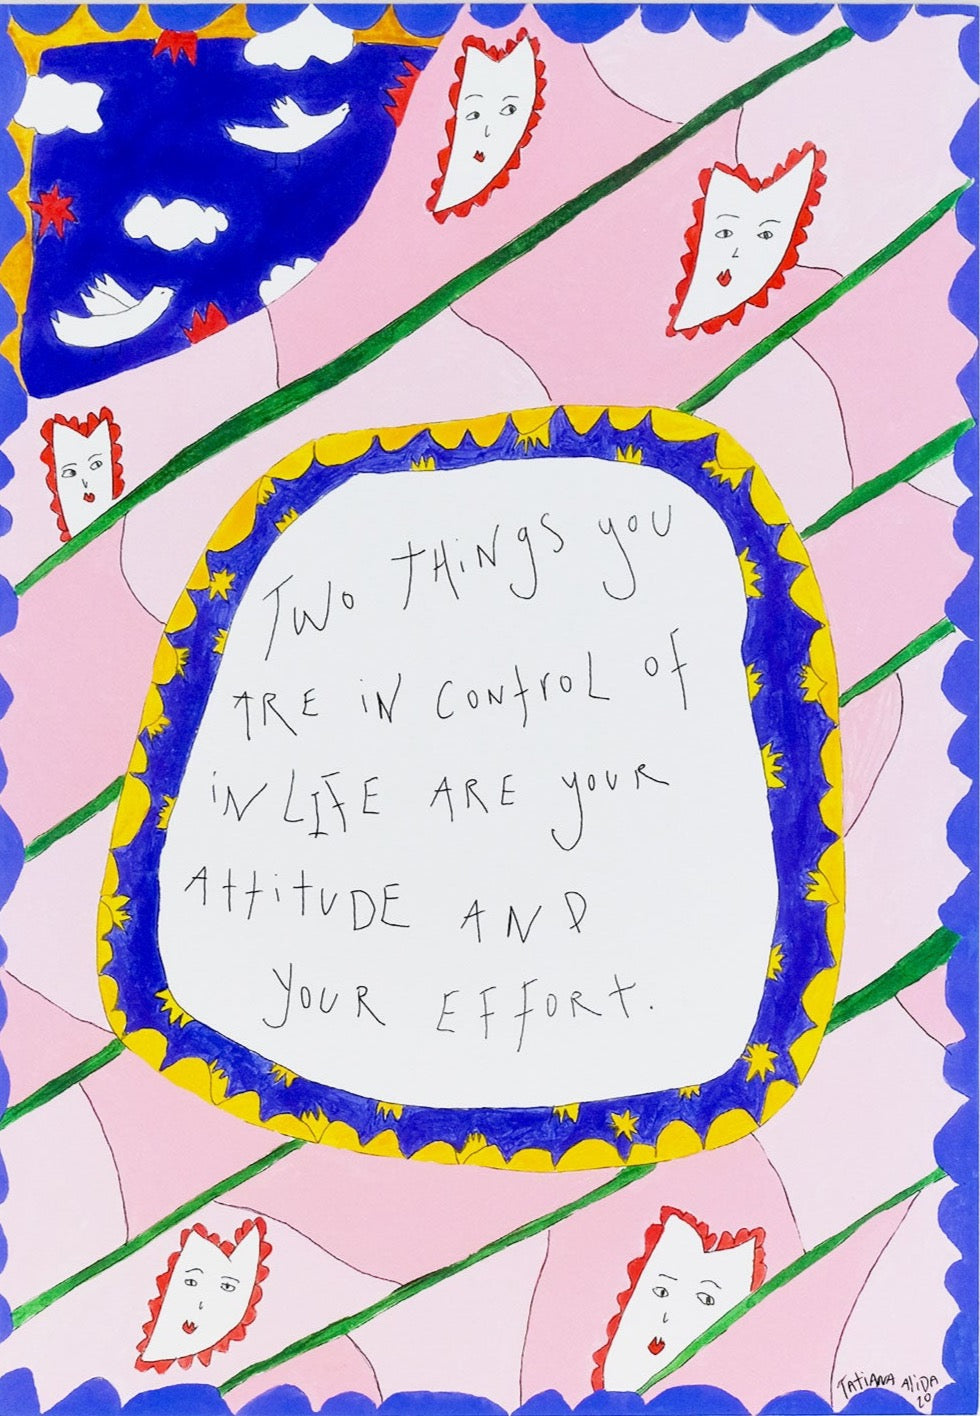 TWO THINGS YOU
ARE IN CONTROL OF
IN LIFE ARE YOUR
ATTITUDE AND
YOUR EFFORT.
TATIANA ALIDA
20